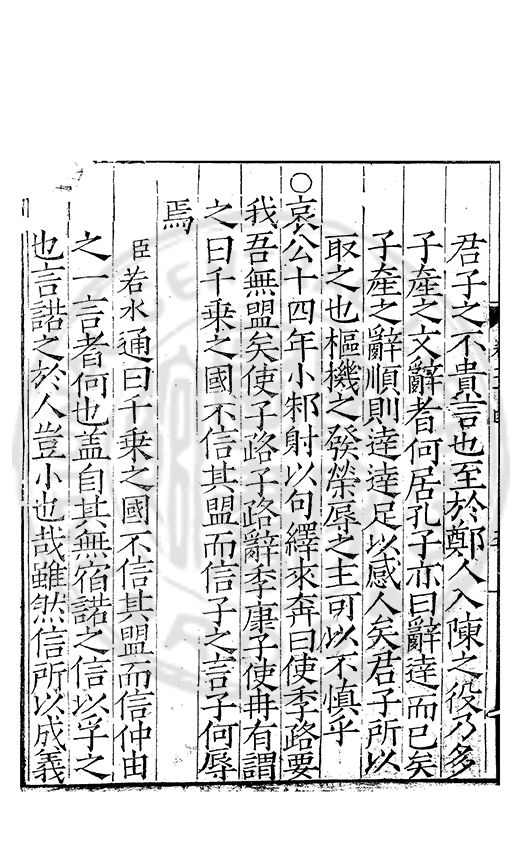 君子之不貴言也至於鄭人入陳之役乃多
子產之文辭者何居孔子亦曰辭達而已矣
子產之辭順則達達足以感人矣君子所以
取之也樞機之發榮辱之主可以不慎乎
○哀公十四年小邾射以句繹來奔曰使季路要
我吾無盟矣使子路子路辭季康子使冉有謂
之曰千乗之國不信其盟而信子之言子何辱
焉
臣若水通曰千乗之國不信其盟而信仲由
之一言者何也盖自其無宿諾之信以孚之
也言諾之於人豈小也哉雖然信所以成義